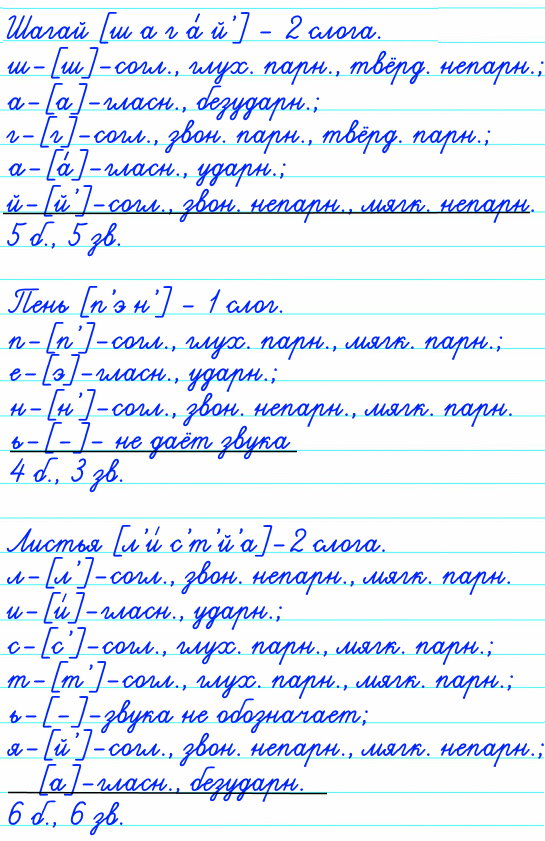 Шагай [ш а г а́ й’] – 2 слога.
ш–[ш]–согл., глух. парн., твёрд. непарн.;
а–[а]–гласн., безударн.;
г–[г]–согл., звон. парн., твёрд. парн.;
а–[а́]–гласн., ударн.;
й–[й’]–согл., звон. непарн., мягк. непарн.
5 б., 5 зв.
Пень [п’э н’] – 1 слог.
п–[п’]–согл., глух. парн., мягк. парн.;
е–[э]–гласн., ударн.;
н–[н’]–согл., звон. непарн., мягк. парн.
ь–[–]– не даёт звука
4 б., 3 зв.
Листья [л’и́ с’т’й’а]–2 слога.
л–[л’]–согл., звон. непарн., мягк. парн.
и–[и́]–гласн., ударн.;
с–[с’]–согл., глух. парн., мягк. парн.;
т–[т’]–согл., глух. парн., мягк. парн.;
ь–[–]–звука не обозначает;
я–[й’]–согл., звон. непарн., мягк. непарн.;
[а]–гласн., безударн.
6 б., 6 зв.